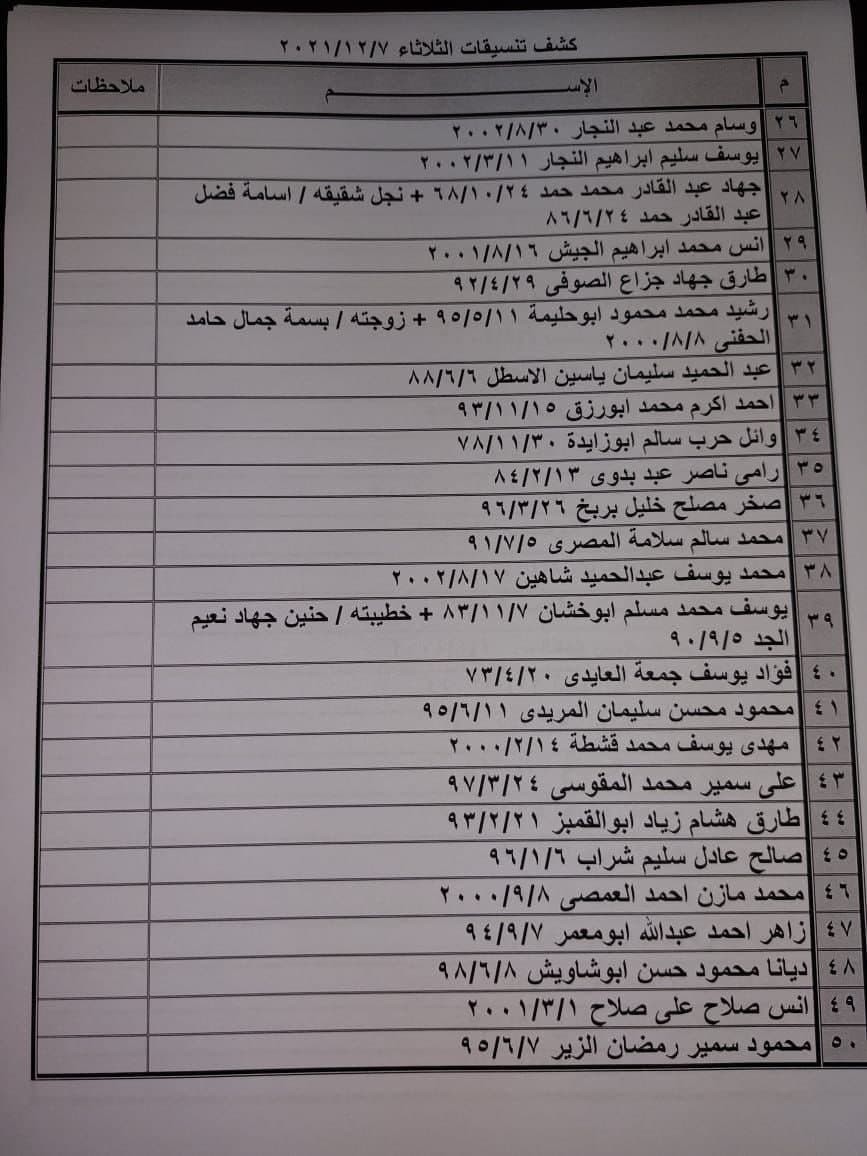 كشف تنسيقات الثلاثاء ٢٠٢١/١٢/٧
م الإســـــــــــــــم ملاحظات
٢٦ وسام محمد عبد النجار ٢٠٠٢/٨/٣٠
٢٧ يوسف سليم ابراهيم النجار ٢٠٠٢/٣/١١
٢٨ جهاد عبد القادر محمد حمد ٦٨/١٠/٢٤ + نجل شقيقه / اسامة فضل
عبد القادر حمد ٨٦/٦/٢٤
٢٩ انس محمد ابراهيم الجيش ٢٠٠١/٨/١٦
٣٠ طارق جهاد جزاع الصوفى ٩٢/٤/٢٩
٣١ رشيد محمد محمود ابوحليمة ٩٥/٥/١١ + زوجته / بسمة جمال حامد
الحفنى ٢٠٠٠/٨/٨
٣٢ عبد الحميد سليمان ياسين الاسطل ٨٨/٦/٦
٣٣ احمد اكرم محمد ابورزق ٩٣/١١/١٥
٣٤ وائل حرب سالم ابوزايدة ٧٨/١١/٣٠
٣٥ رامى ناصر عبد بدوى ٨٤/٢/١٣
٣٦ صخر مصلح خليل بربخ ٩٦/٣/٢٦
٣٧ محمد سالم سلامة المصرى ٩١/٧/٥
٣٨ محمد يوسف عبدالحميد شاهين ٢٠٠٢/٨/١٧
٣٩ يوسف محمد مسلم ابوخشان ٨٣/١١/٧ + خطيبته / حنين جهاد نعيم
الجد ٩٠/٩/٥
٤٠ فؤاد يوسف جمعة العايدى ٧٣/٤/٢٠
٤١ محمود محسن سليمان المريدى ٩٥/٦/١١
٤٢ مهدى يوسف محمد قشطة ٢٠٠٠/٢/١٤
٤٣ على سمير محمد المقوسى ٩٧/٣/٢٤
٤٤ طارق هشام زياد ابوالقمبز ٩٣/٢/٢١
٤٥ صالح عادل سليم شراب ٩٦/١/٦
٤٦ محمد مازن احمد العمصى ٢٠٠٠/٩/٨
٤٧ زاهر احمد عبدالله ابومعمر ٩٤/٩/٧
٤٨ ديانا محمود حسن ابوشاويش ٩٨/٦/٨
٤٩ انس صلاح على صلاح ٢٠٠١/٣/١
٥٠ محمود سمير رمضان الزير ٩٥/٦/٧